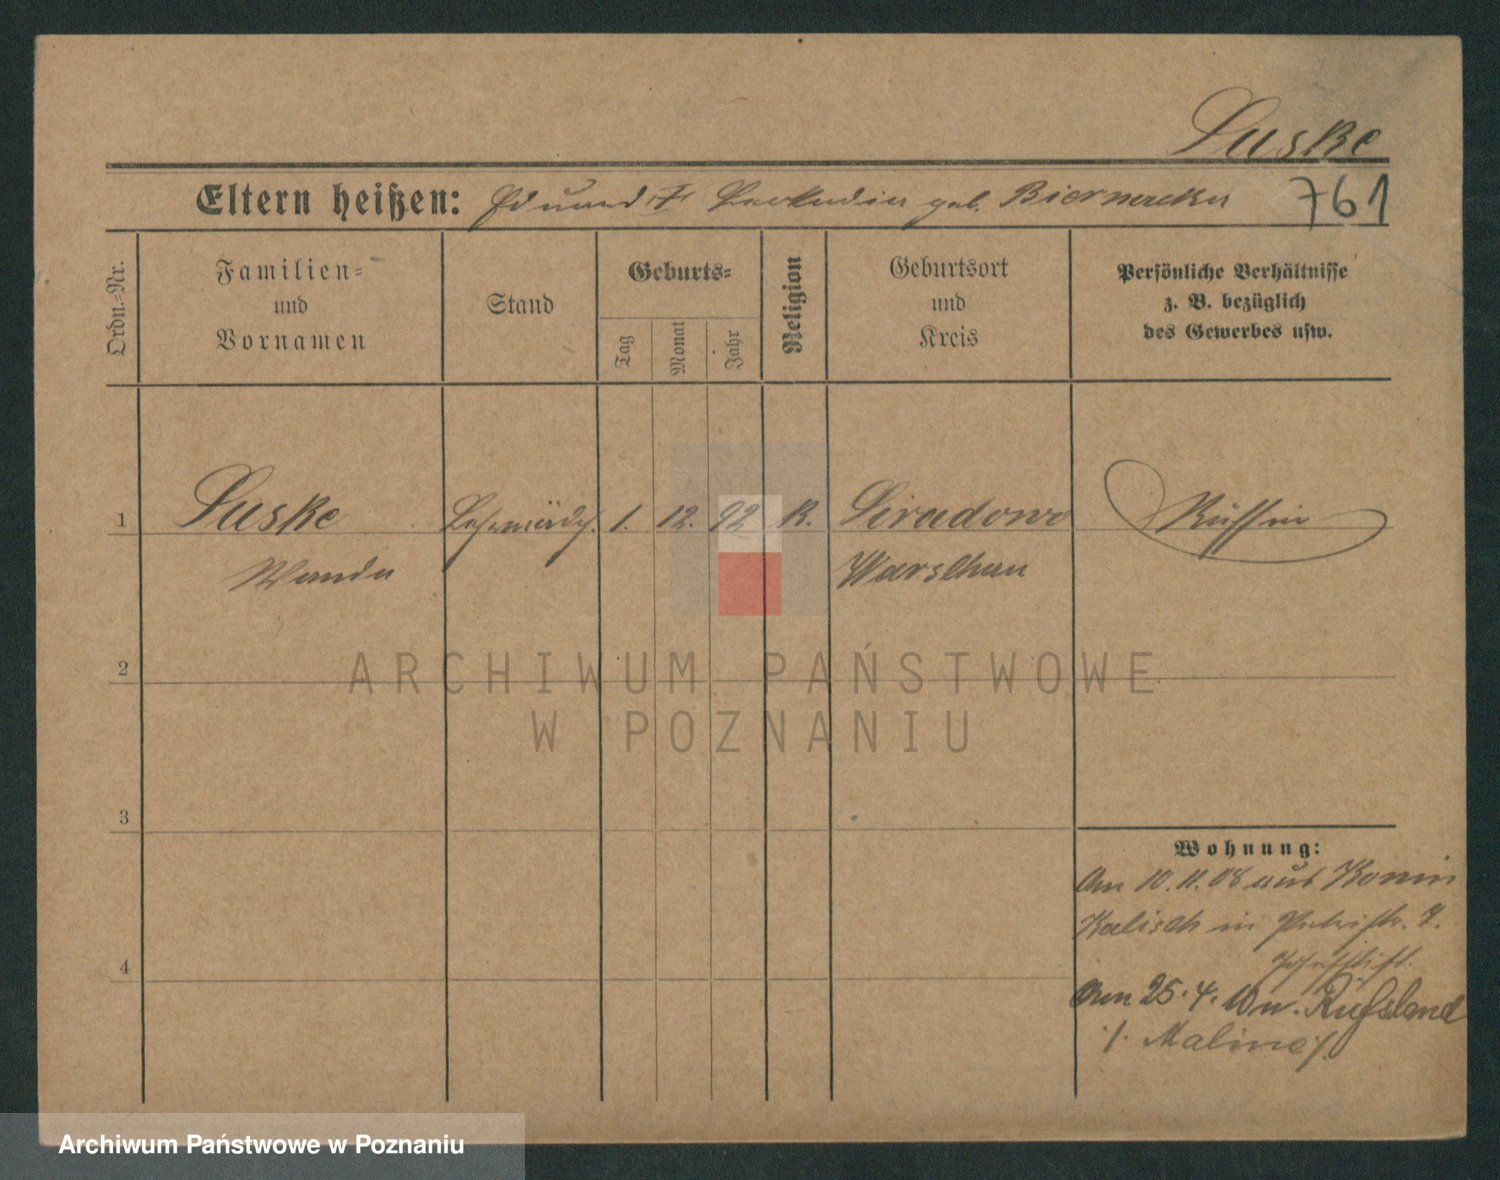 Luske
Eltern heißen: Eduard † Leokadia geb. Biernacka 761
Ordn.-Nr.
Familien-
und
Vornamen
Stand
Geburts-
Tag
Monat
Jahr
Religion
Geburtsort
und
Kreis
Persönliche Verhältnisse
z. B. bezüglich
des Gewerbes usw.
1 Luske Lehrmädch. 1. 12. 92 K. Siradowo Russin
Wanda Warschau
2
3
4
Wohnung:
Am 10. 11. 08 aus Konin
Kalisch in Petristr. 7.
Am 25. 4. 10 n. Rußland
/. Maline /.
ARCHIWUM PAŃSTWOWE
W POZNANIU
Archiwum Państwowe w Poznaniu